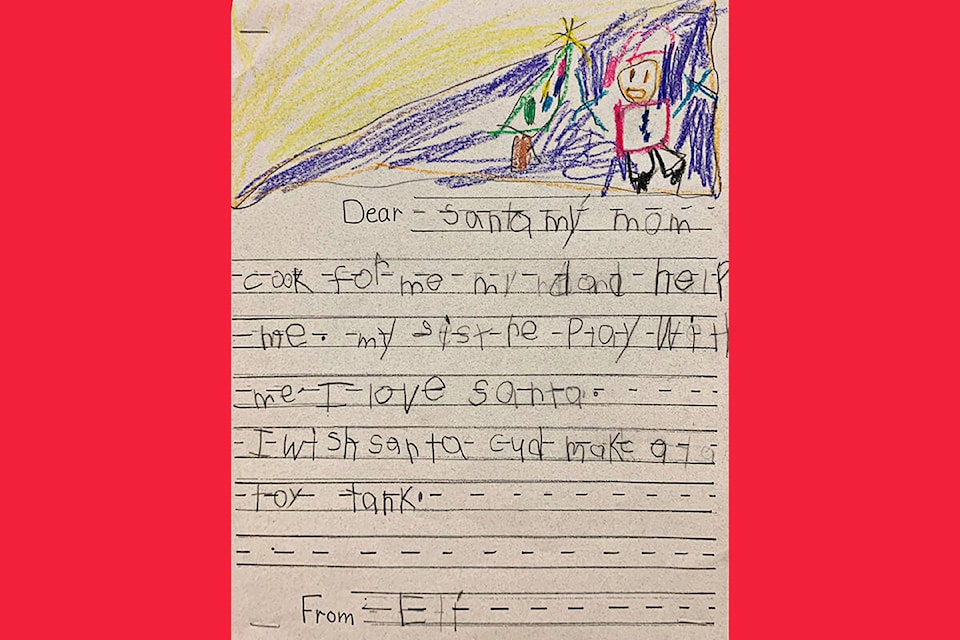 Dear santa my mom
cook for me my dad and help
me. my sist he Play With
me I love santa.
I wish santa cud make a
toy tank.
From Eli